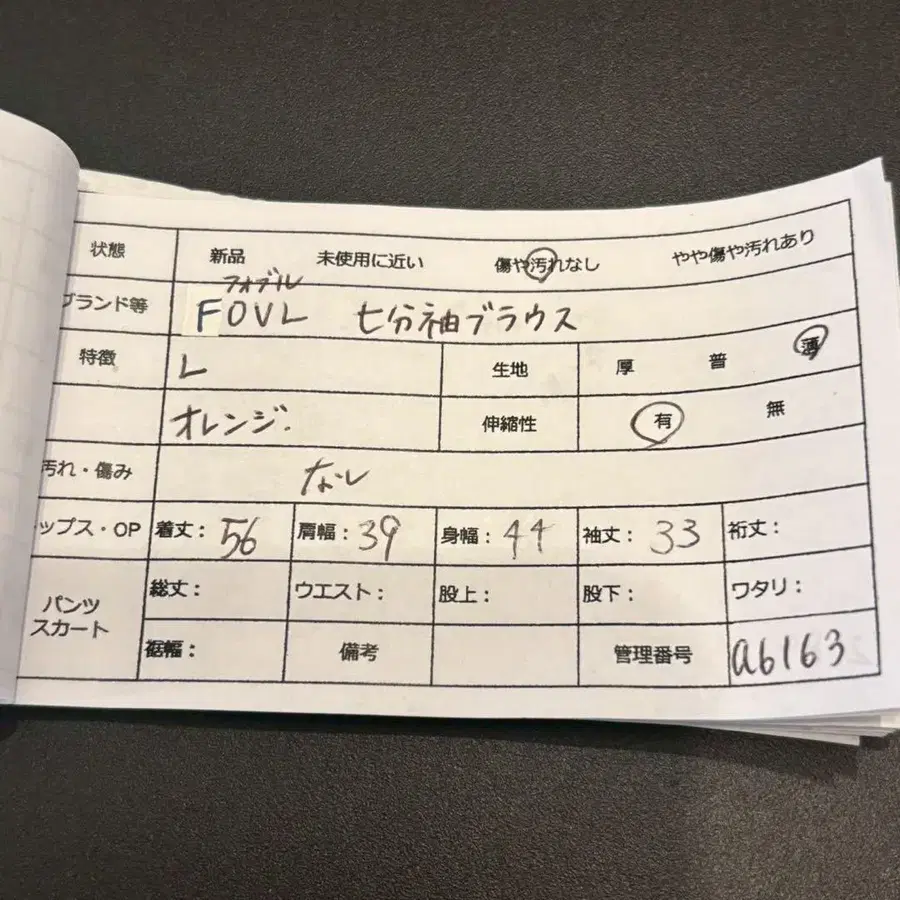 状態 新品 未使用に近い 傷や汚れなし やや傷や汚れあり
フォブル
ブランド等 FOVL 七分袖ブラウス
特徴 L 生地 厚 普 薄
オレンジ. 伸縮性 有 無
汚れ・傷み なし
ップス・OP 着丈: 56 肩幅: 39 身幅: 44 袖丈: 33 裄丈:
パンツ スカート 総丈: ウエスト: 股上: 股下: ワタリ:
裾幅: 備考 管理番号 a6163